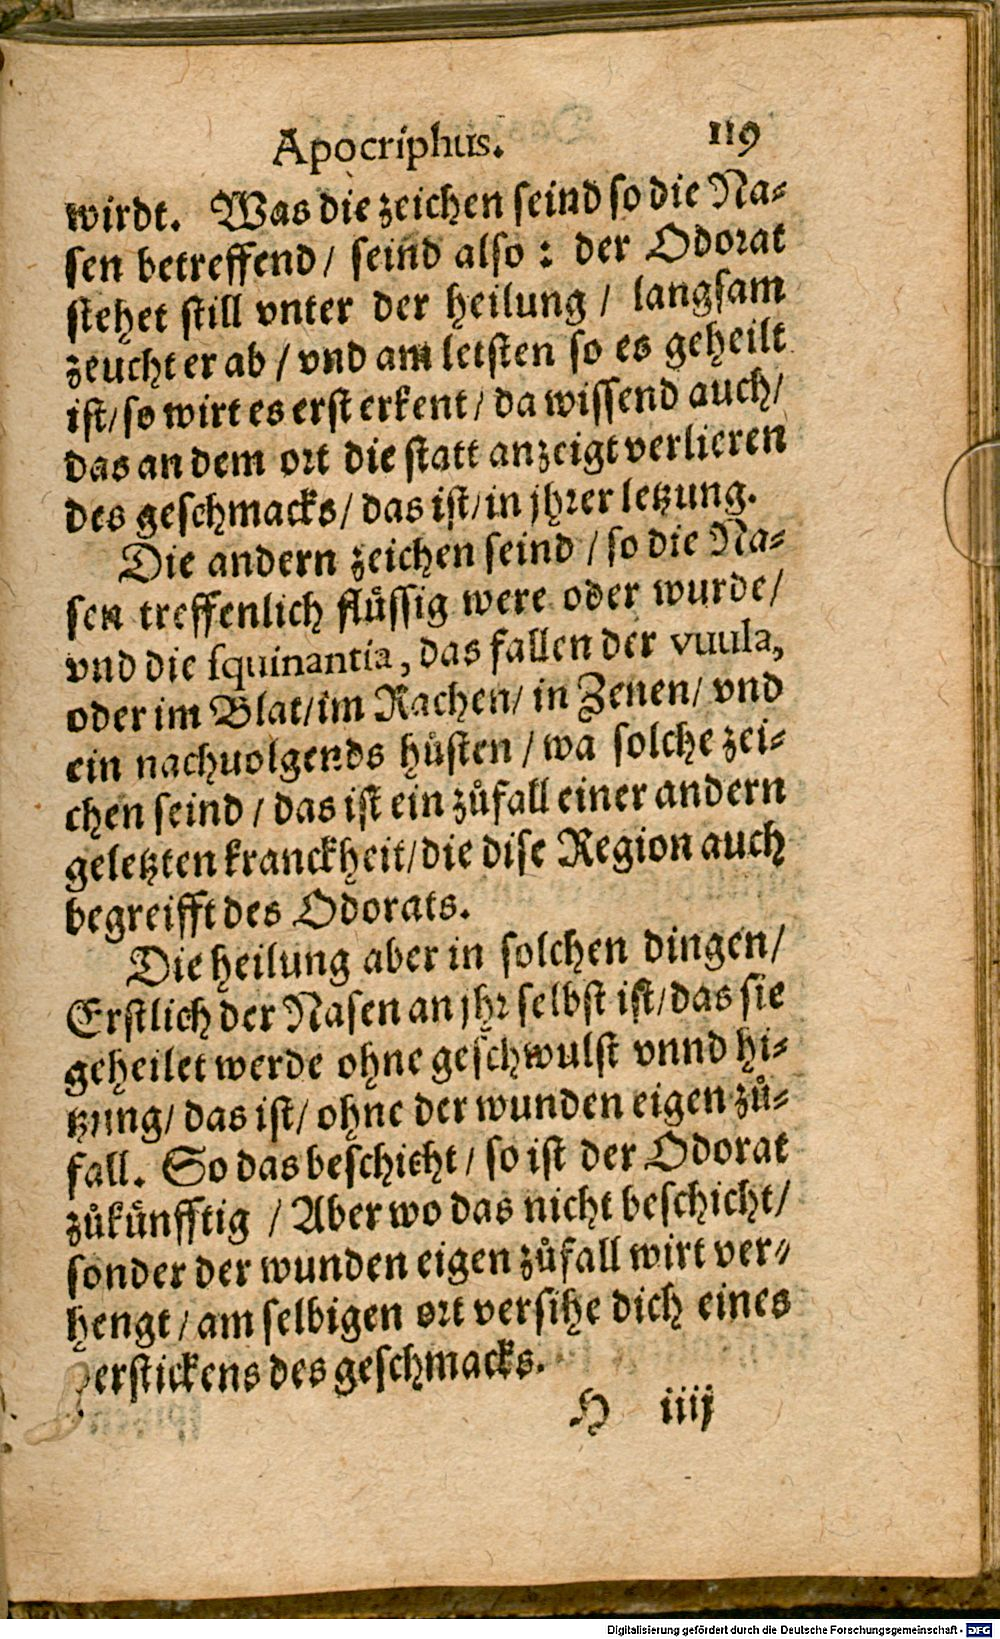 Apocriphus. 119
wirdt. Was die zeichen seind so die Na⸗
sen betreffend / seind also : der Odorat
stehet still vnter der heilung / langsam
zeucht er ab / vnd am letsten so es geheilt
ist / so wirt es erst erkent / da wissend auch /
das an dem ort die statt anzeigt verlieren
des geschmacks / das ist / in jhrer letzung.
Die andern zeichen seind / so die Na⸗
sen treffenlich flüssig were oder wurde /
vnd die squinantia, das fallen der vuula,
oder im Blat / im Rachen / in Zenen / vnd
ein nachuolgends hůsten / wa solche zei⸗
chen seind / das ist ein zůfall einer andern
geletzten kranckheit / die dise Region auch
begreifft des Odorats.
Die heilung aber in solchen dingen /
Erstlich der Nasen an jhr selbst ist / das sie
geheilet werde ohne geschwulst vnnd hi⸗
tzung / das ist / ohne der wunden eigen zů⸗
fall. So das beschicht / so ist der Odorat
zůkünfftig / Aber wo das nicht beschicht /
sonder der wunden eigen zůfall wirt ver⸗
hengt / am selbigen ort versihe dich eines
erstickens des geschmacks.
H iiij
Digitalisierung gefördert durch die Deutsche Forschungsgemeinschaft - DFG